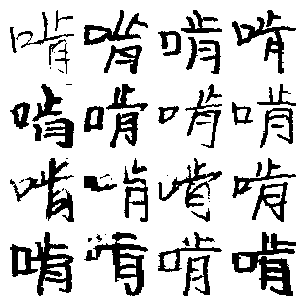 啃啃啃啃
啃啃啃啃
啃啃啃啃
啃啃啃啃